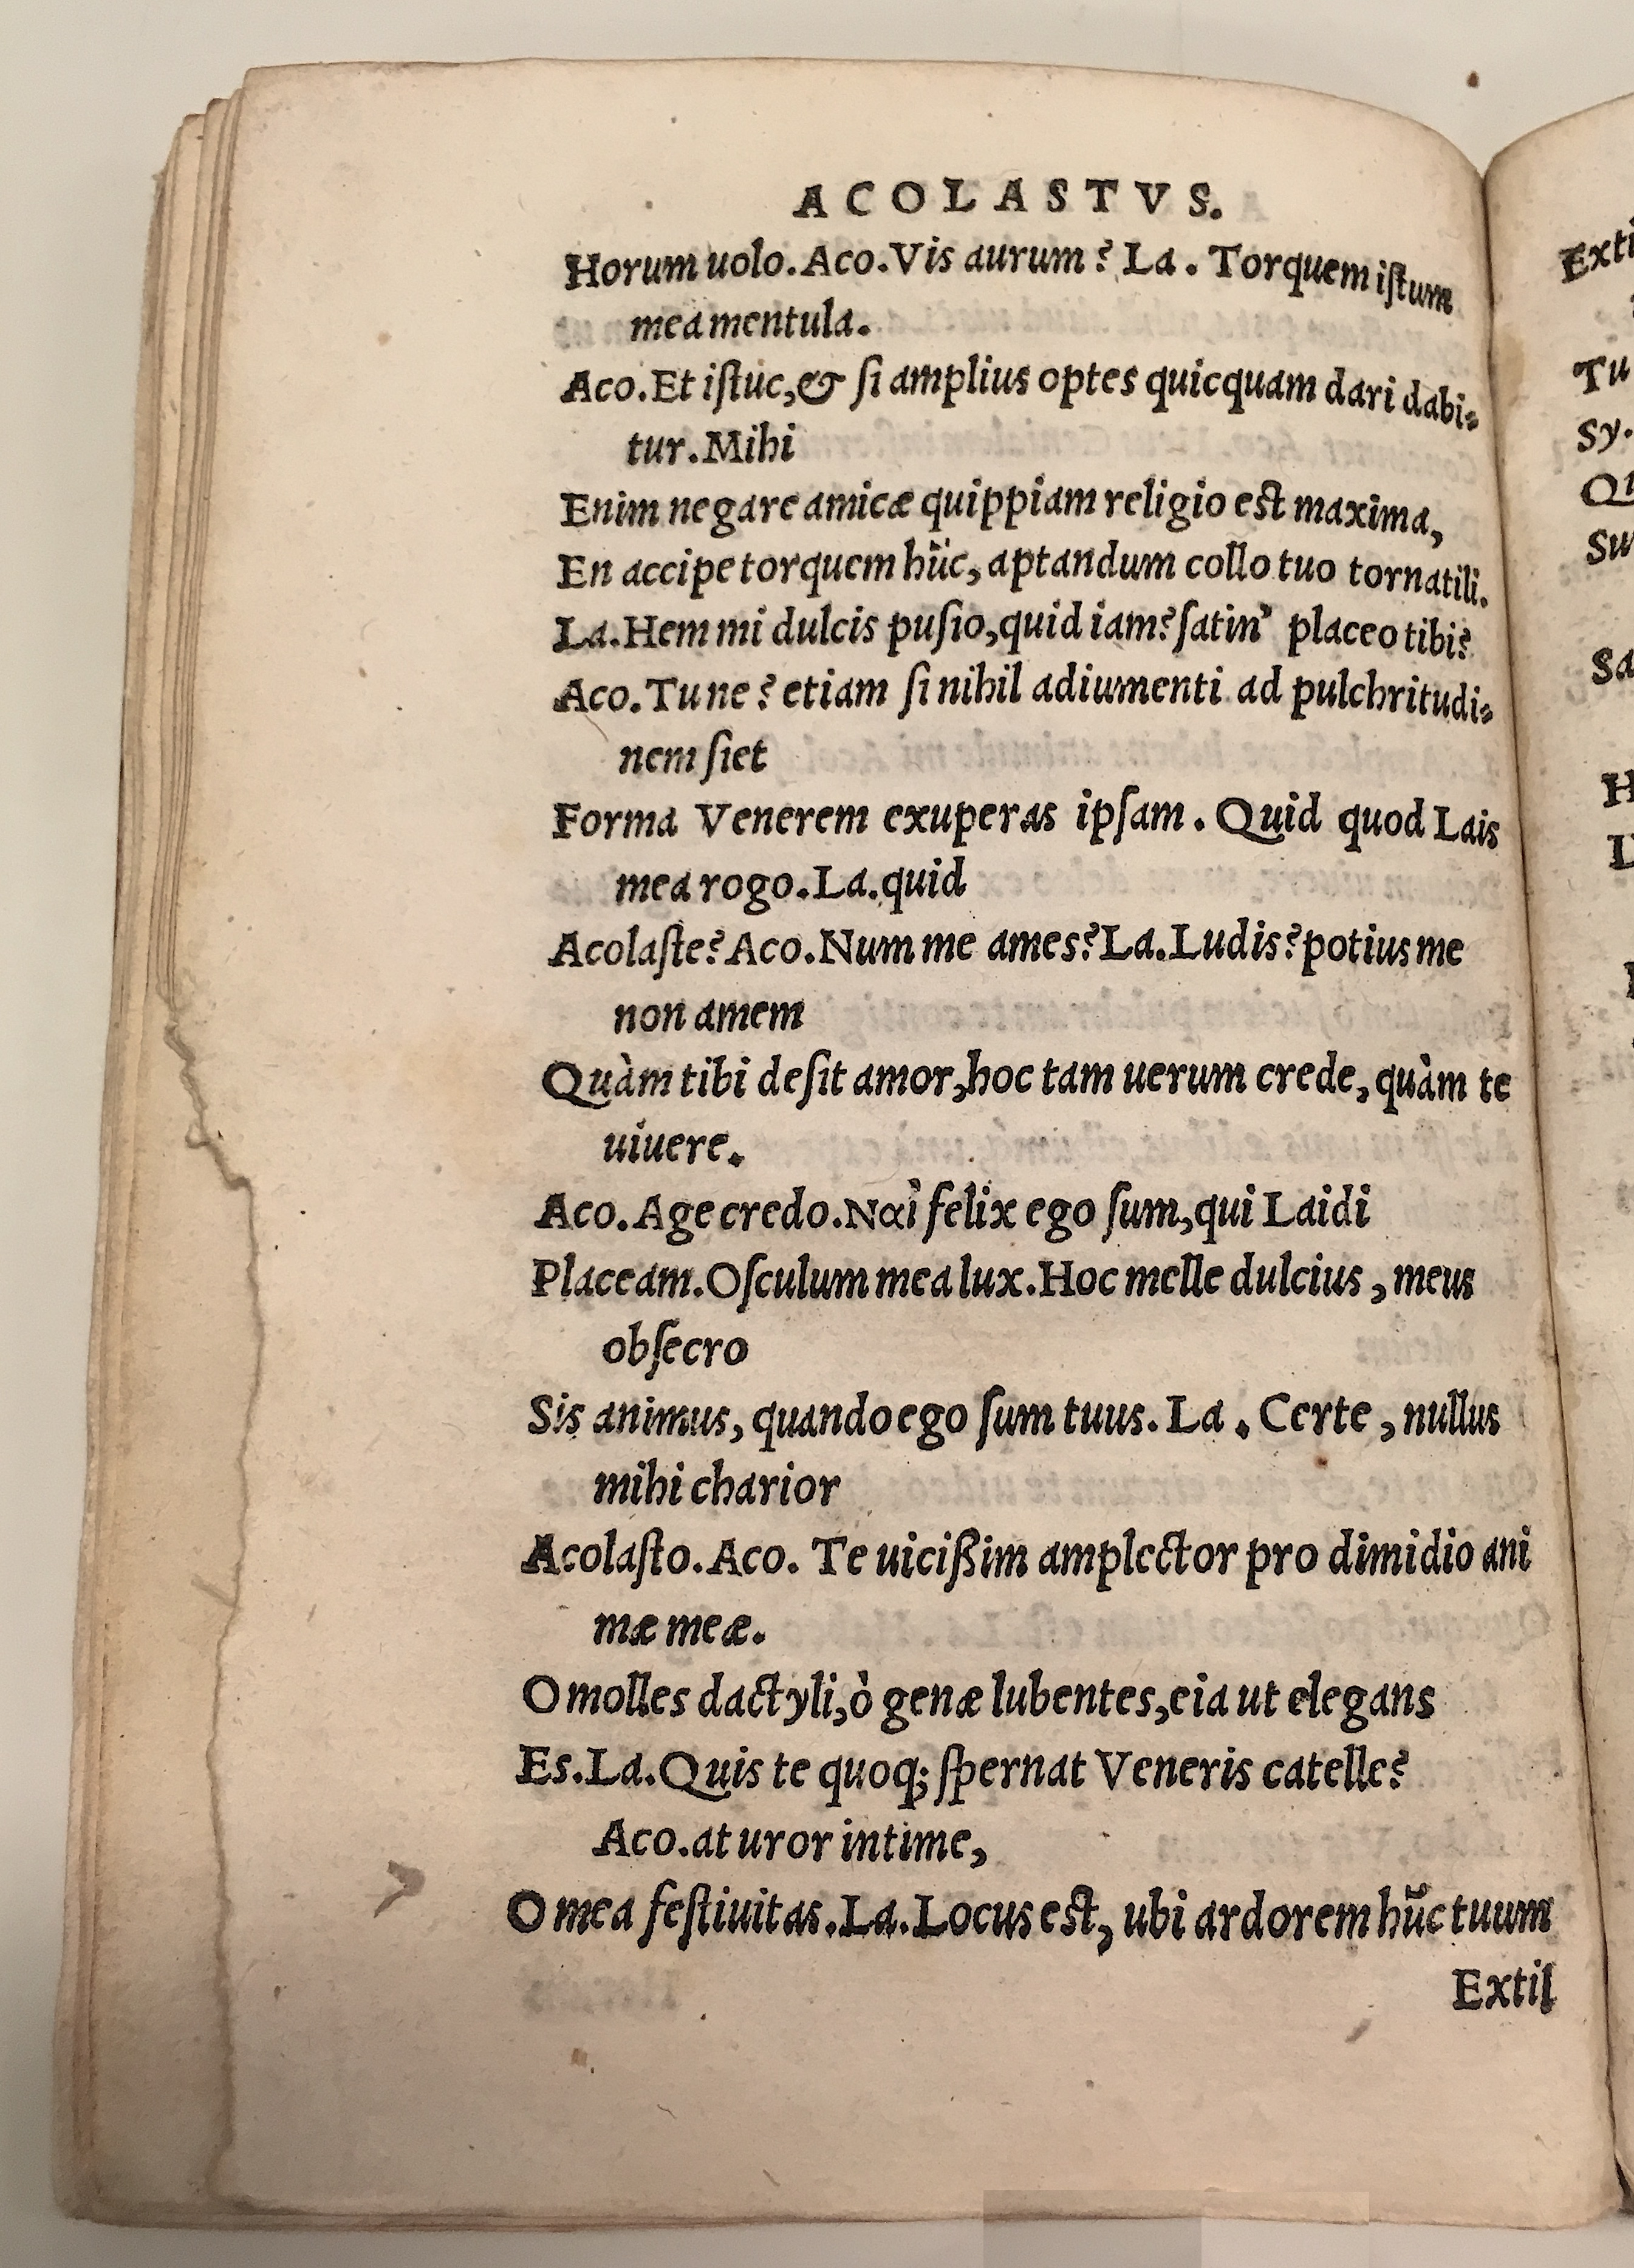 ACOLASTVS.
Horum uolo. Aco. Vis aurum? La. Torquem iſtum
mea mentula.
Aco. Et iſtuc, & ſi amplius optes quicquam dari dabi-
tur. Mihi
Enim negare amicæ quippiam religio est maxima,
En accipe torquem hūc, aptandum collo tuo tornatili.
La. Hem mi dulcis puſio, quid iam? ſatin' placeo tibi?
Aco. Tu ne? etiam ſi nihil adiumenti ad pulchritudi-
nem ſiet
Forma Venerem exuperas ipſam. Quid quod Lais
mea rogo. La. quid
Acolaſte? Aco. Num me ames? La. Ludis? potius me
non amem
Quàm tibi deſit amor, hoc tam uerum crede, quàm te
uiuere.
Aco. Age credo. Ναὶ felix ego ſum, qui Laidi
Placeam. Oſculum mea lux. Hoc melle dulcius, meus
obſecro
Sis animus, quando ego ſum tuus. La. Certe, nullus
mihi charior
Acolaſto. Aco. Te uicißim amplector pro dimidio ani
mæ meæ.
O molles dactyli, ò genæ lubentes, eia ut elegans
Es. La. Quis te quoq; ſpernat Veneris catelle?
Aco. at uror intime,
O mea feſtiuitas. La. Locus est, ubi ardorem hūc tuum
Extil
Exti
Tu
Sy.
Sa